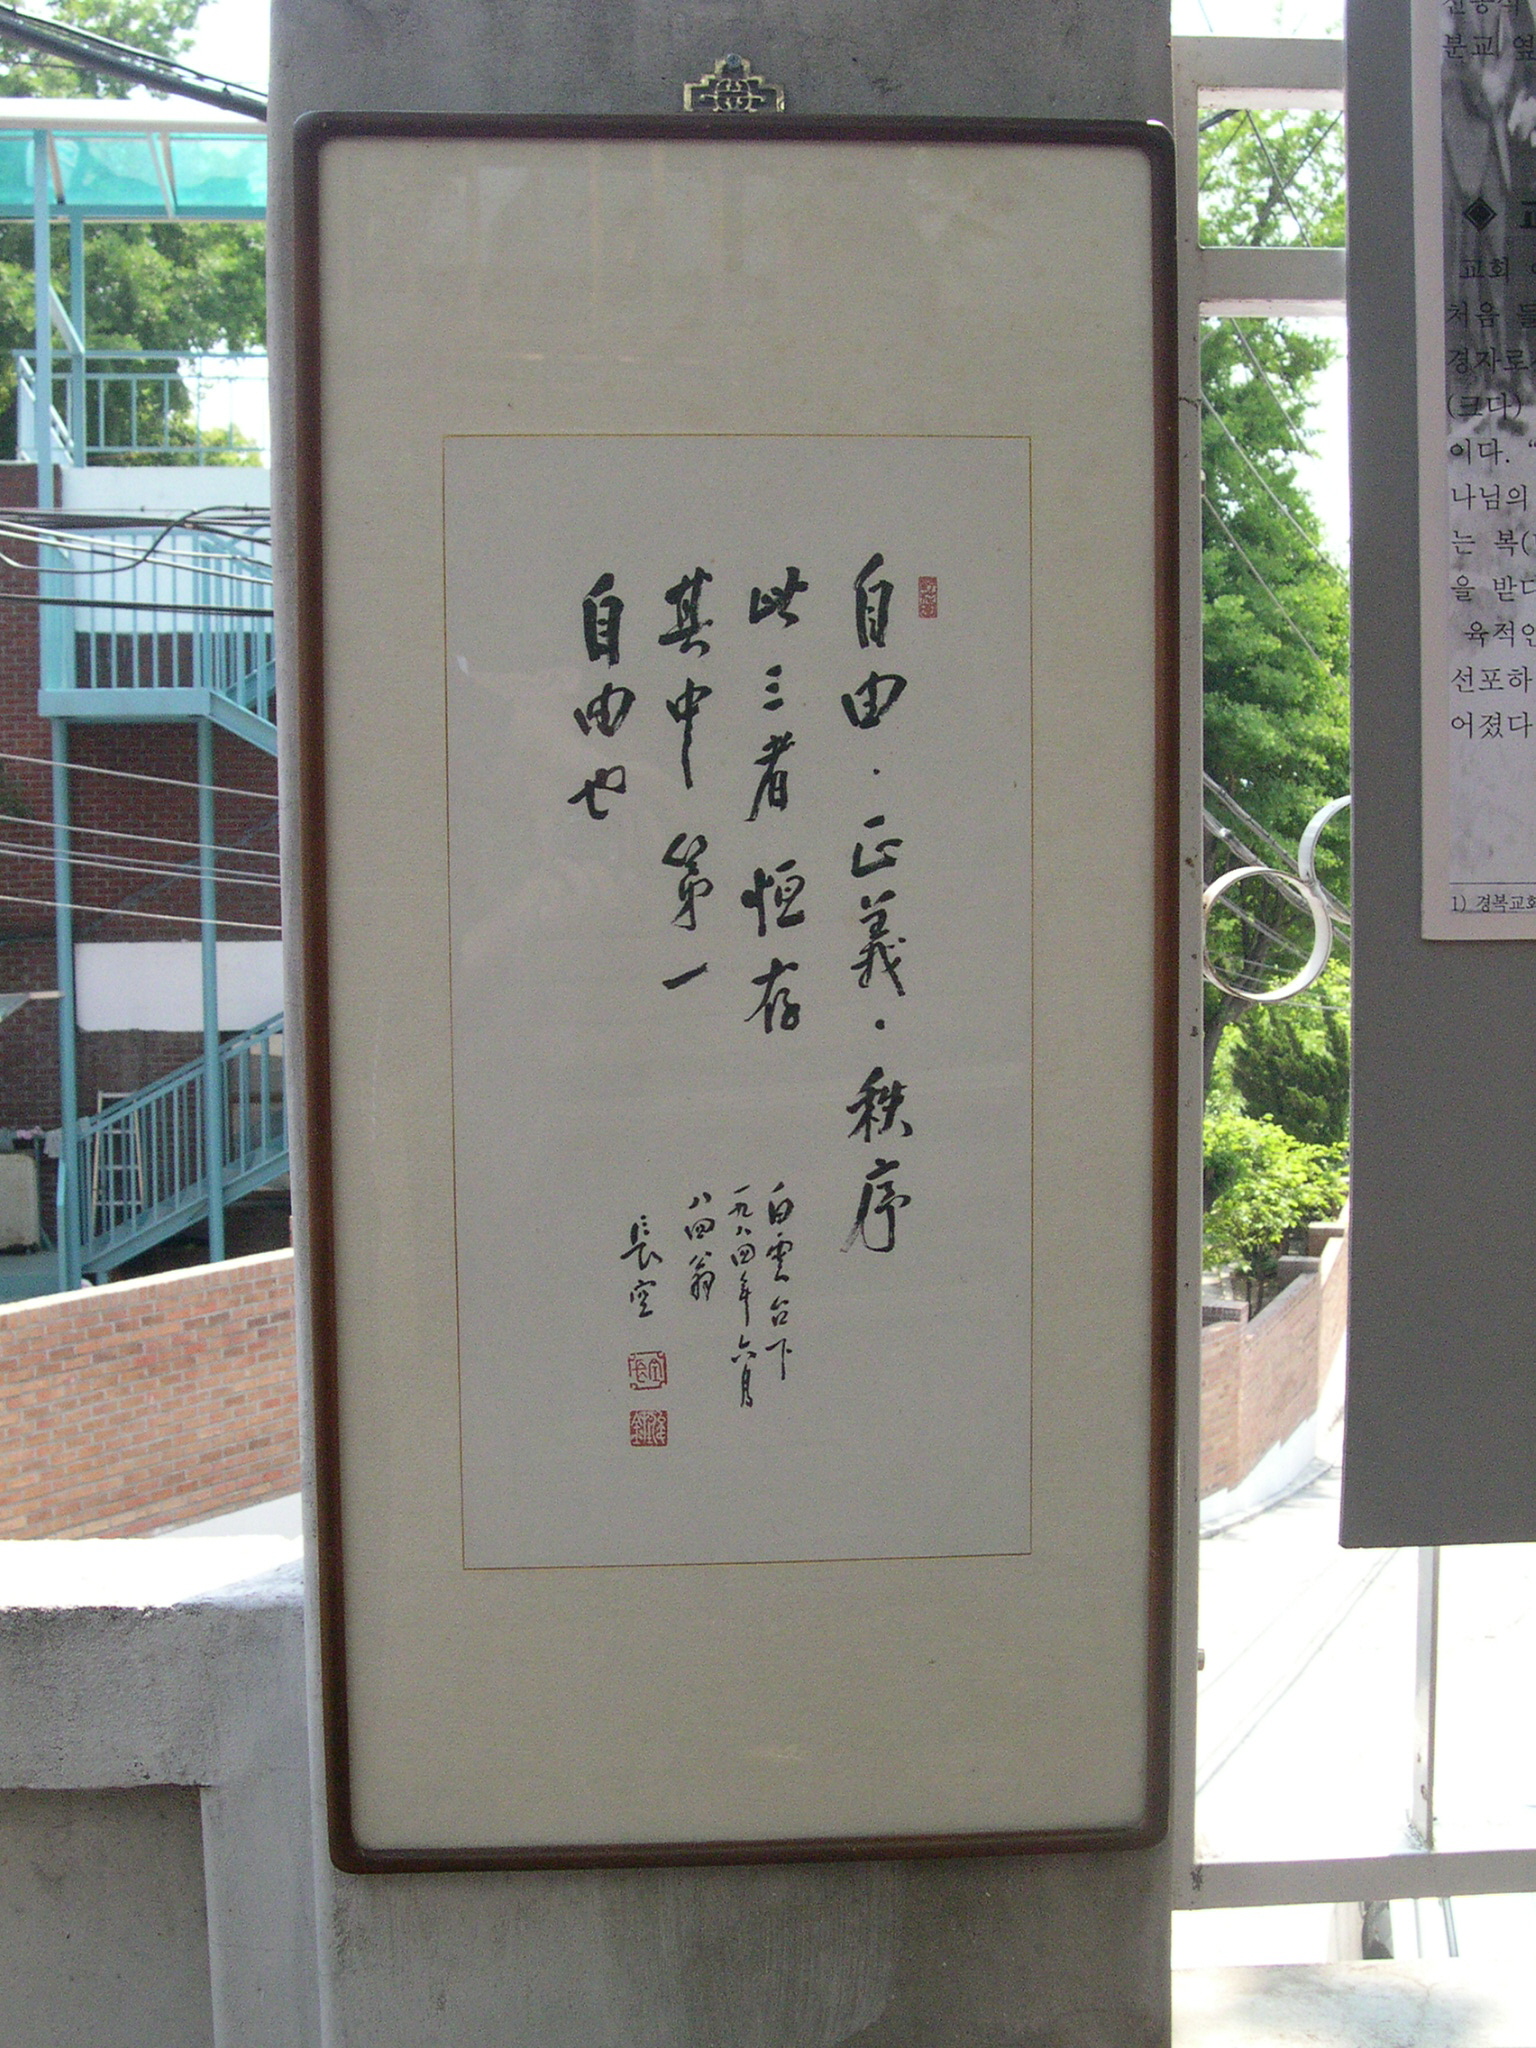 自由·正義·秩序
此三者恒存
其中第一
自由也
白雲台下
一九八四年六月
八四翁
長空
분교 옆
교회
처음
경자로
(크다)
이다. “
나님의
는 복(
을 받
육적인
선포하
어졌다
1) 경복교회